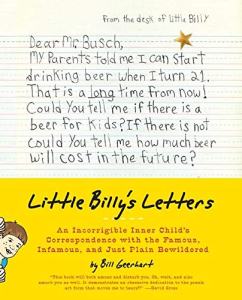 from the desk of Little Billy
Dear Mr. Busch,
My Parents told me I can start
drinking beer when I turn 21.
That is a long time from now!
Could You tell me if there is a
beer for kids? If there is not
could You tell me how much beer
will cost in the future?
Little Billy's Letters
An Incorrigible Inner Child's
Correspondence with the Famous,
Infamous, and Just Plain Bewildered
by Bill Geerhart
"This book will both amuse and disturb you. Oh, wait, and also
amort you as well. It demonstrates an obsessive dedication to the comic
art form that moves me to tears!" —David Cross